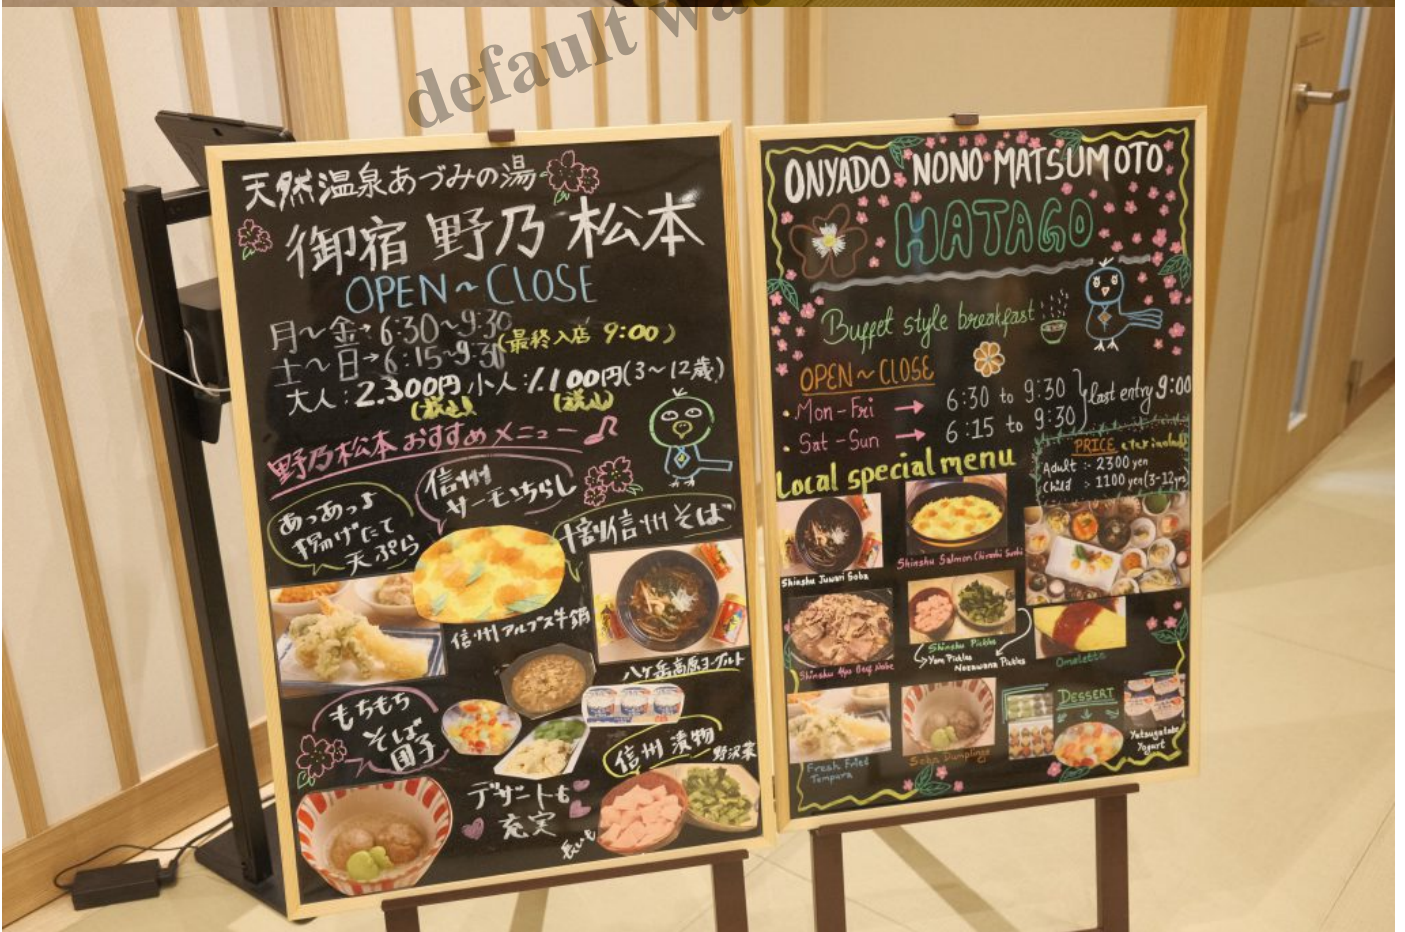 default
天然温泉あづみの湯
御宿 野乃 松本
OPEN~CLOSE
月~金→6:30~9:30
土~日→6:15~9:30
(最終入店 9:00)
大人:2.300円 小人:1.100円(3~12歳)
(税込) (税込)
野乃松本 おすすめメニュー
あっあっよ
揚げたて
天ぷら
信州
サーモンちらし
十割信州そば
信州アルプス牛鍋
八ヶ岳高原ヨーグルト
もちもち
そば
団子
デザートも
充実
信州 漬物
野沢菜
長いも
ONYADO NONO MATSUMOTO
HATAGO
Buffet style breakfast
OPEN~CLOSE
・Mon-Fri → 6:30 to 9:30
・Sat-Sun → 6:15 to 9:30
last entry 9:00
PRICE
Adult :- 2300 yen
Child :- 1100 yen (3-12yrs)
Local special menu
Shinshu Juwari Soba
Shinshu Salmon Chirashi Sushi
Shinshu Alps Beef Nabe
Shinshu Pickles
Yam Pickles
Nozawana Pickles
Omelette
Fresh Fried
Tempura
Soba Dumplings
DESSERT
Yatsugatake
Yogurt